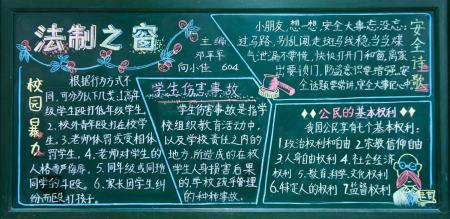 法制之窗
主编
邓军军
向小佳 604
校园暴力
根据行为方式不
同,可分为以下几类:1.高年
级学生殴打低年级学生。
2.校外青年殴打在校学
生。3.老师体罚或变相体
罚学生。4.老师对学生的
人格尊严侮辱。5.同年级或同班
同学的斗殴。6.家长因学生纠
纷而殴打孩子。
学生伤害事故
学生伤害事故是指学
校组织教育活动中,
以及学校责任之内的
地方,所造成的在校
学生人身损害后果
的学校或乎管理
的一种事故。
安全诗歌
小朋友,想一想,安全大事忘没忘:
过马路,别乱闯,走斑马线稳当,当煤
气泄漏不要慌,快快打开门和窗,离家
出要锁门,防盗意识要增强,安
全话题要常讲,安全大事记心
公民的基本权利
我国公民享有七个基本权利:
1.政治权利和自由 2.宗教信仰自由
3.人身自由权利 4.社会经济
权利 5.教育、科学、文化权利
6.特定人的权利 7.监督权利